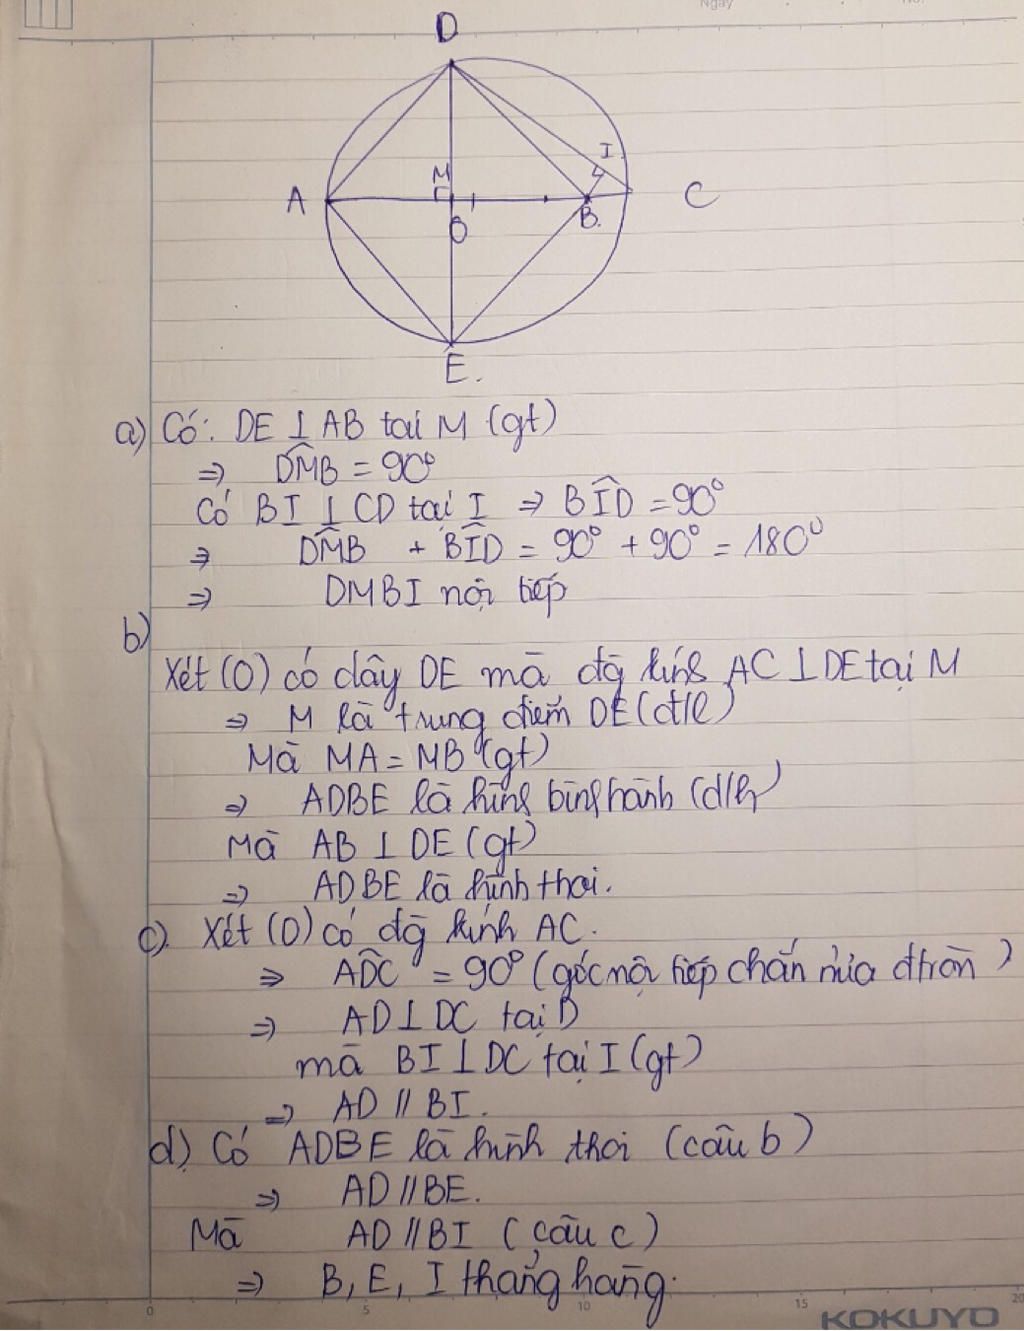 Ngày
No.
D
I
M
A
C
O
B.
E.
a) Có: DE ⊥ AB tại M (gt)
⇒ DMB = 90°
Có BI ⊥ CD tại I ⇒ BID = 90°
⇒ DMB + BID = 90° + 90° = 180°
⇒ DMBI nội tiếp
b)
Xét (O) có dây DE mà đg kính AC ⊥ DE tại M
⇒ M là trung điểm DE (đ/l)
Mà MA = MB (gt)
⇒ ADBE là hình bình hành (d/h)
Mà AB ⊥ DE (gt)
⇒ ADBE là hình thoi.
c). Xét (O) có đg kính AC.
⇒ ADC = 90° (góc nội tiếp chắn nửa đtròn)
⇒ AD ⊥ DC tại D
mà BI ⊥ DC tại I (gt)
⇒ AD // BI.
d) Có ADBE là hình thoi (câu b)
⇒ AD // BE.
Mà AD // BI (câu c)
⇒ B, E, I thẳng hàng.
0 5 10 15 20
KOKUYO